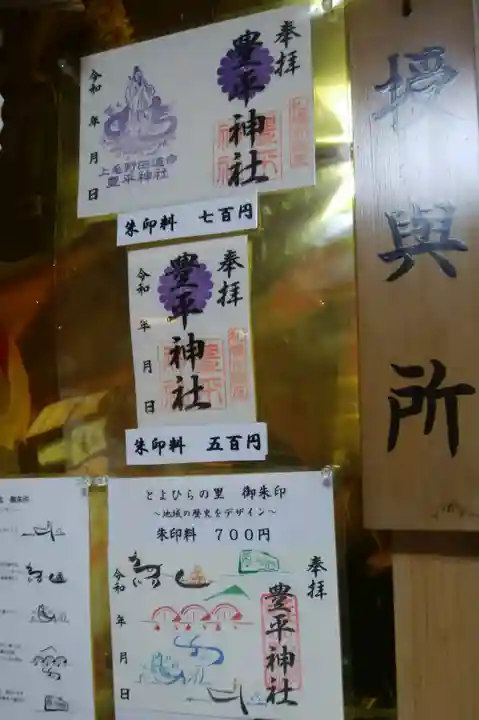 授與所
奉拝
豊平神社
令和 年 月 日
上毛野田道命
豊平神社
朱印料 七百円
奉拝
豊平神社
令和 年 月 日
朱印料 五百円
とよひらの里 御朱印
～地域の歴史をデザイン～
朱印料 700円
奉拝
豊平神社
令和 年 月 日